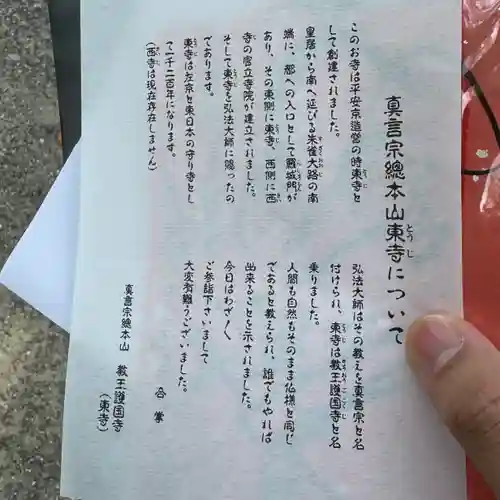 真言宗總本山東寺について
とうじ
このお寺は平安京造営の時東寺と
して創建されました。
皇居から南へ延びる朱雀大路の南
端に、都への入口として羅城門が
あり、その東側に東寺、西側に西
寺の官立寺院が建立されました。
そして東寺を弘法大師に賜ったの
であります。
東寺は左京と東日本の守り寺とし
て一千二百年になります。
(西寺は現在存在しません)
弘法大師はその教えを真言宗と名
付けられ、東寺は教王護国寺と名
乗りました。
人間も自然もそのまま仏様と同じ
であると教えられ、誰でもやれば
出来ることを示されました。
今日はわざ〱
ご参詣下さいまして
大変有難うございました。
合掌
真言宗總本山 教王護国寺
(東寺)